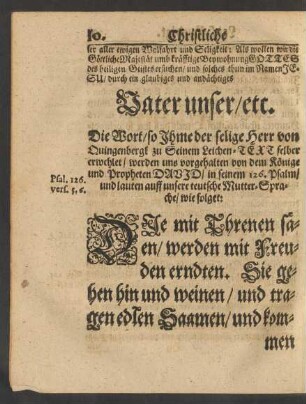 10. Christliche
ser aller ewigen Wolfahrt und Seligkeit: Als wollen wir die
Göttliche Majestät umb kräfftige Beywohnung GOTTES
des heiligen Geistes ersuchen/ und solches thun im Namen JE-
SU/ durch ein gläubiges und andächtiges
Vater unser/etc.
Die Wort/ so Ihme der selige Herr von
Quingenbergk zu Seinem Leichen-TEXT selber
erwehlet/ werden uns vorgehalten von dem Könige
und Propheten DAVID/ in seinem 126. Psalm/
Psal. 126.
vers. 5, 6.
und lauten auff unsere teutsche Mutter-Spra-
che/ wie folget:
DIe mit Threnen sä-
en/ werden mit Freu-
den erndten. Sie ge-
hen hin und weinen/ und tra-
gen edlen Saamen/ und kom-
men